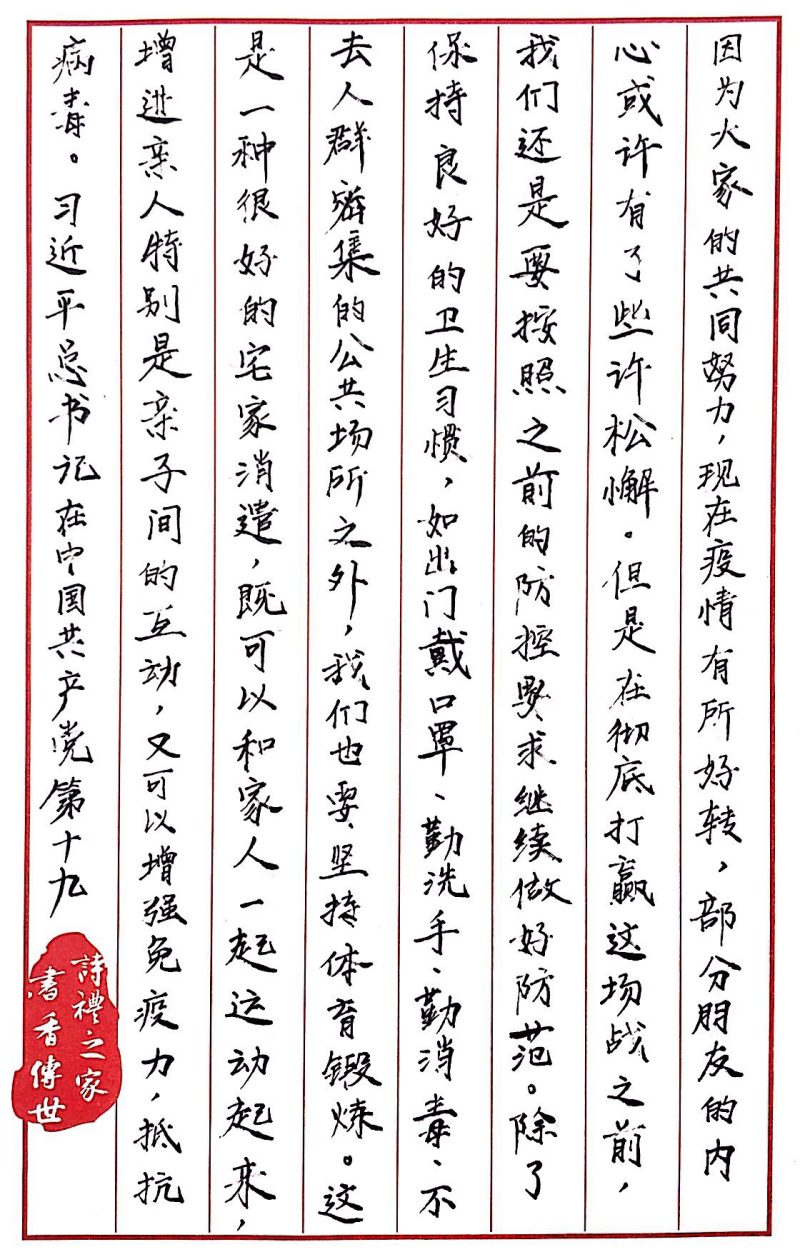 因为大家的共同努力，现在疫情有所好转，部分朋友的内
心或许有了些许松懈。但是在彻底打赢这场战之前，
我们还是要按照之前的防控要求继续做好防范。除了
保持良好的卫生习惯，如出门戴口罩、勤洗手、勤消毒、不
去人群密集的公共场所之外，我们也要坚持体育锻炼。这
是一种很好的宅家消遣，既可以和家人一起运动起来，
增进亲人特别是亲子间的互动，又可以增强免疫力，抵抗
病毒。习近平总书记在中国共产党第十九
詩禮之家
書香傳世